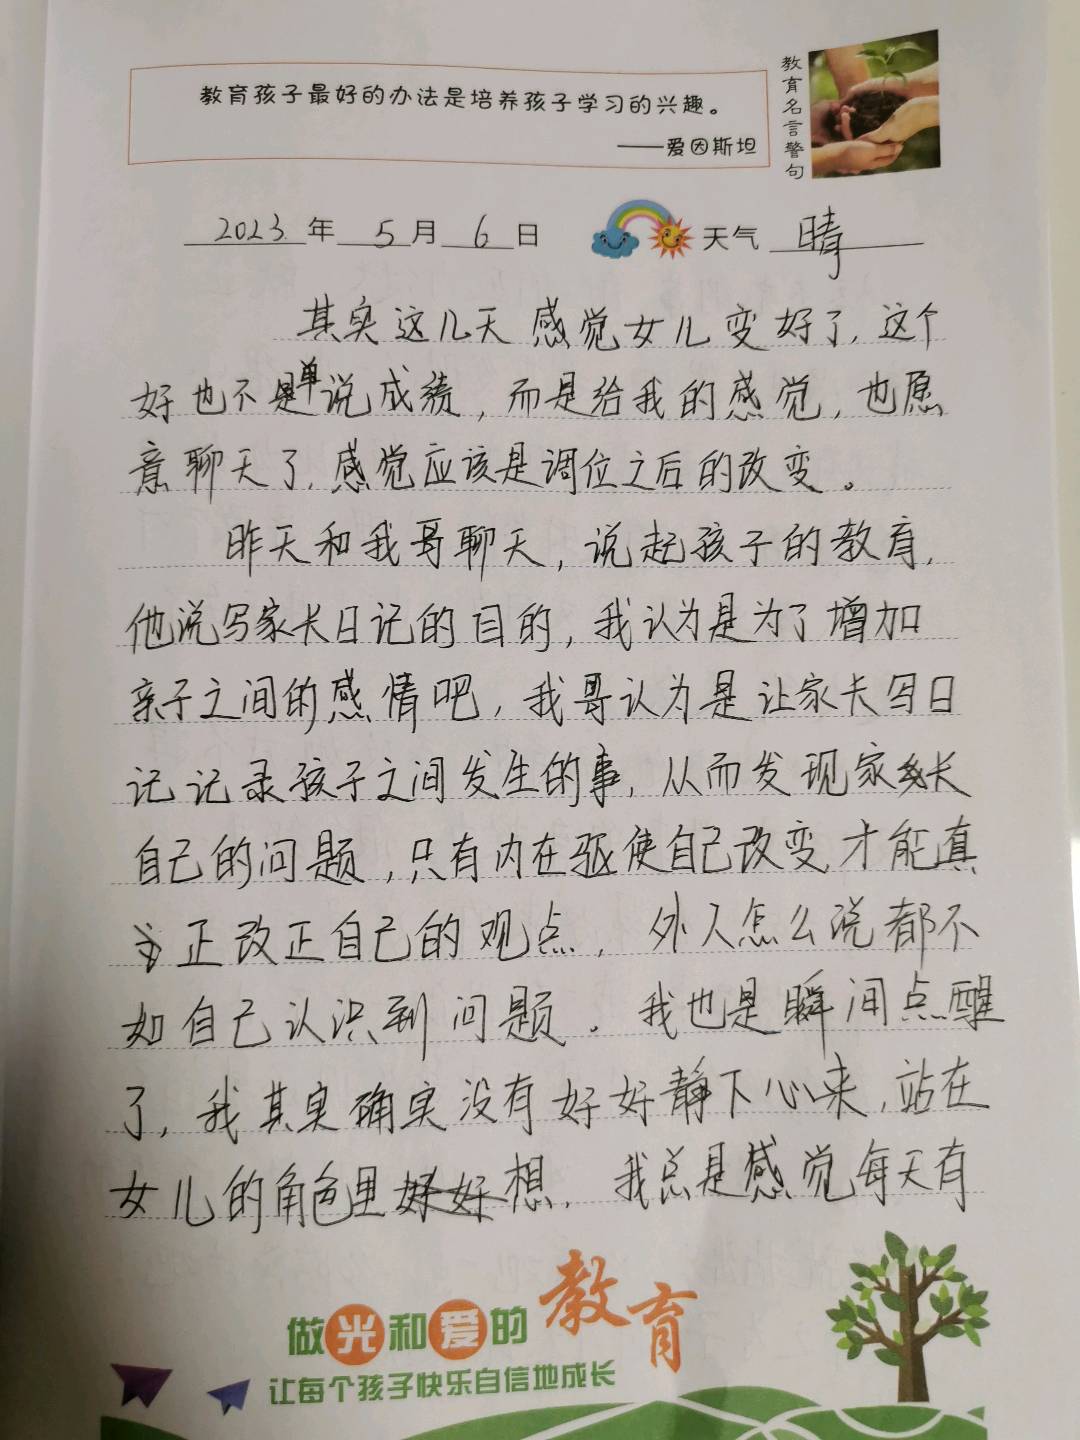 教育孩子最好的办法是培养孩子学习的兴趣。
——爱因斯坦
教育名言警句
2023.年 5月 6日 天气 晴
其实这几天感觉女儿变好了,这个
好也不是单说成绩,而是给我的感觉,也愿
意聊天了,感觉应该是调位之后的改变。
昨天和我哥聊天,说起孩子的教育,
他说写家长日记的目的,我认为是为了增加
亲子之间的感情吧,我哥认为是让家长写日
记记录孩子之间发生的事,从而发现家长
自己的问题,只有内在驱使自己改变,才能真
正改正自己的观点,外人怎么说都不
如自己认识到问题。我也是瞬间点醒
了,我其实确实没有好好静下心来,站在
女儿的角色里想,我总是感觉每天有
做光和爱的教育
让每个孩子快乐自信地成长